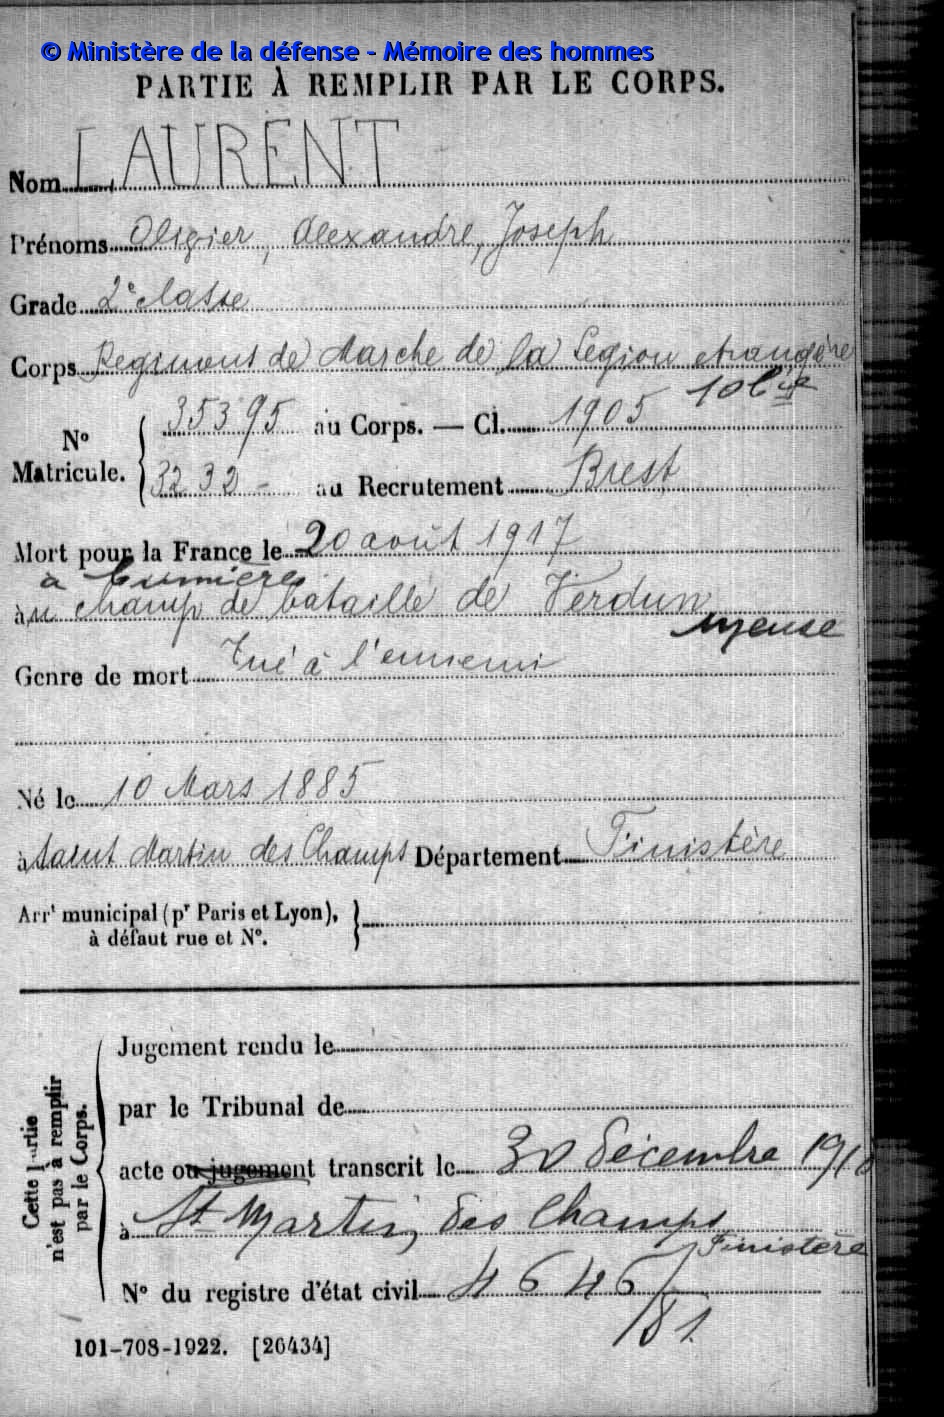 © Ministère de la défense - Mémoire des hommes
PARTIE À REMPLIR PAR LE CORPS.
Nom LAURENT
Prénoms Oligier, Alexandre, Joseph
Grade 2e classe
Corps Régiment de Marche de la Légion étrangère
10 Cie
N° Matricule. 35395 au Corps. — Cl. 1905
3232 - au Recrutement Brest
Mort pour la France le 20 août 1917
à Cumières
à u champ de bataille de Verdun
Meuse
Genre de mort Tué à l'ennemi
Né le 10 Mars 1885
à Saint Martin des Champs Département Finistère
Arrt municipal (pr Paris et Lyon),
à défaut rue et N°.
Cette partie n'est pas à remplir par le Corps.
Jugement rendu le
par le Tribunal de
acte ou jugement transcrit le 30 décembre 191
à St Martin des Champs
Finistère
N° du registre d'état civil 4646/
/81
101-708-1922. [26434]